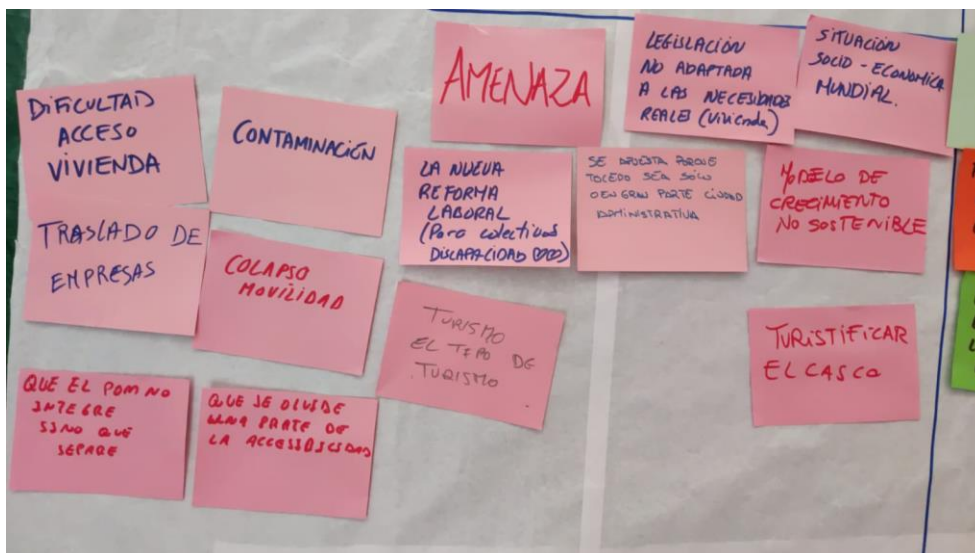 DIFICULTAD
ACCESO
VIVIENDA
CONTAMINACIÓN
AMENAZA
LEGISLACIÓN
NO ADAPTADA
A LAS NECESIDADES
REALES (Vivienda)
SITUACIÓN
SOCIO-ECONOMICA
MUNDIAL.
TRASLADO DE
EMPRESAS
COLAPSO
MOVILIDAD
LA NUEVA
REFORMA
LABORAL
(Para colectivos
DISCAPACIDAD
SE APUESTA PORQUE
TOLEDO SEA SÓLO
O EN GRAN PARTE CIUDAD
ADMINISTRATIVA
MODELO DE
CRECIMIENTO
NO SOSTENIBLE
TURISMO
EL TIPO DE
TURISMO
TURISTIFICAR
EL CASCO
QUE EL POM NO
INTEGRE
SINO QUE
SEPARE
QUE SE OLVIDE
UNA PARTE DE
LA ACCESIBILIDAD